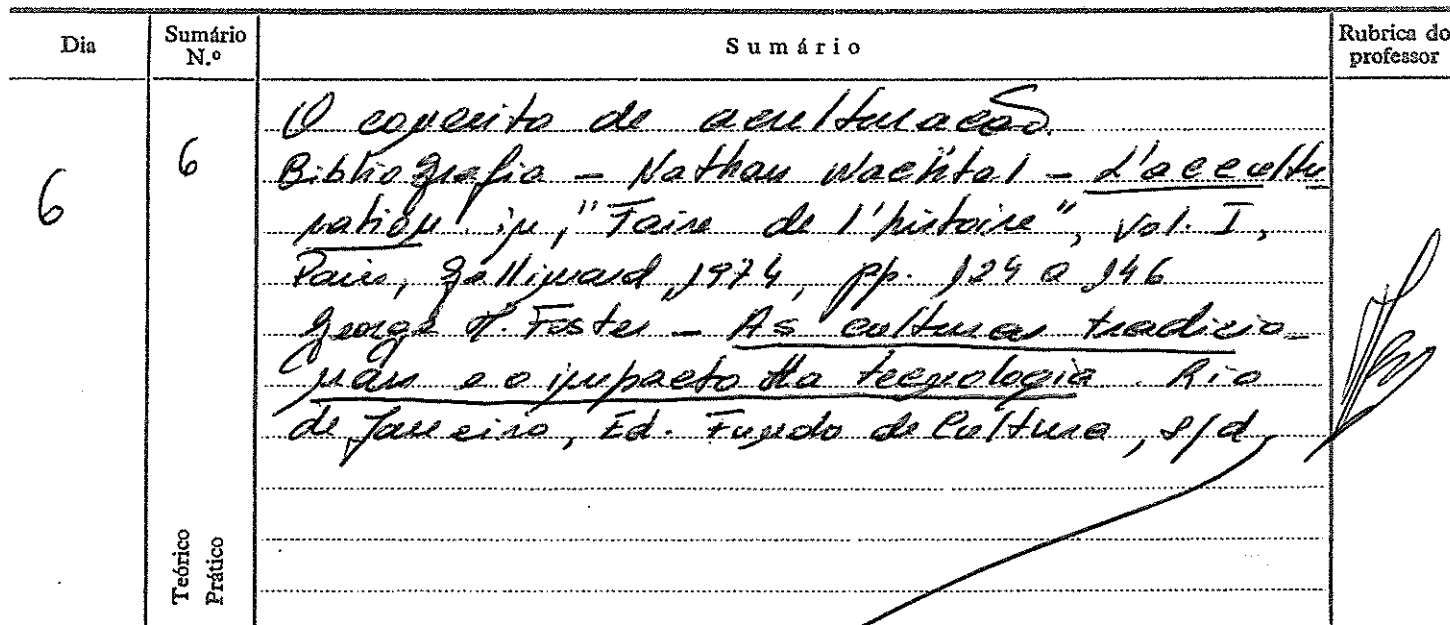 Dia
Sumário
N.º
Sumário
Rubrica do
professor
6
6
O conceito de aculturação.
Bibliografia - Nathan Wachtel - L'accultu
ration in, "Faire de l'histoire", Vol. I,
Paris, Gallimard, 1974, pp. 124 a 146
George M. Foster - As culturas tradicio-
nais e o impacto da tecnologia. Rio
de Janeiro, Ed. Fundo de Cultura, s/d
Teórico
Prático